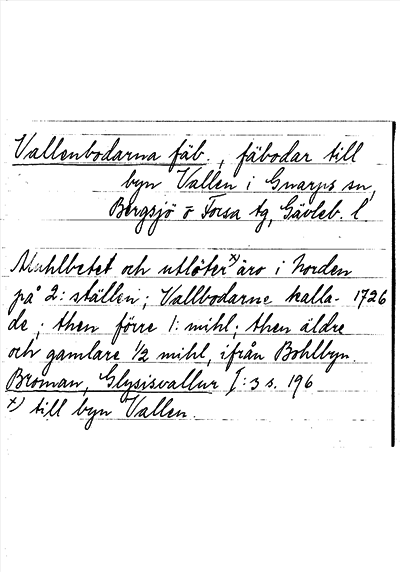 Vallenbodarna fäb., fäbodar till
byn Vallen i Gnarps sn,
Bergsjö o Forsa tg, Gävleb. l.
Muhlbetet och utlöter x) äro i Norden
på 2: ställen; Vallbodarne kalla- 1726
de; then förre 1: mihl; then äldre
och gamlare 1/2 mihl, ifrån Bohlbyn.
Broman, Glysisvallur I:3 s. 196
x) till byn Vallen.